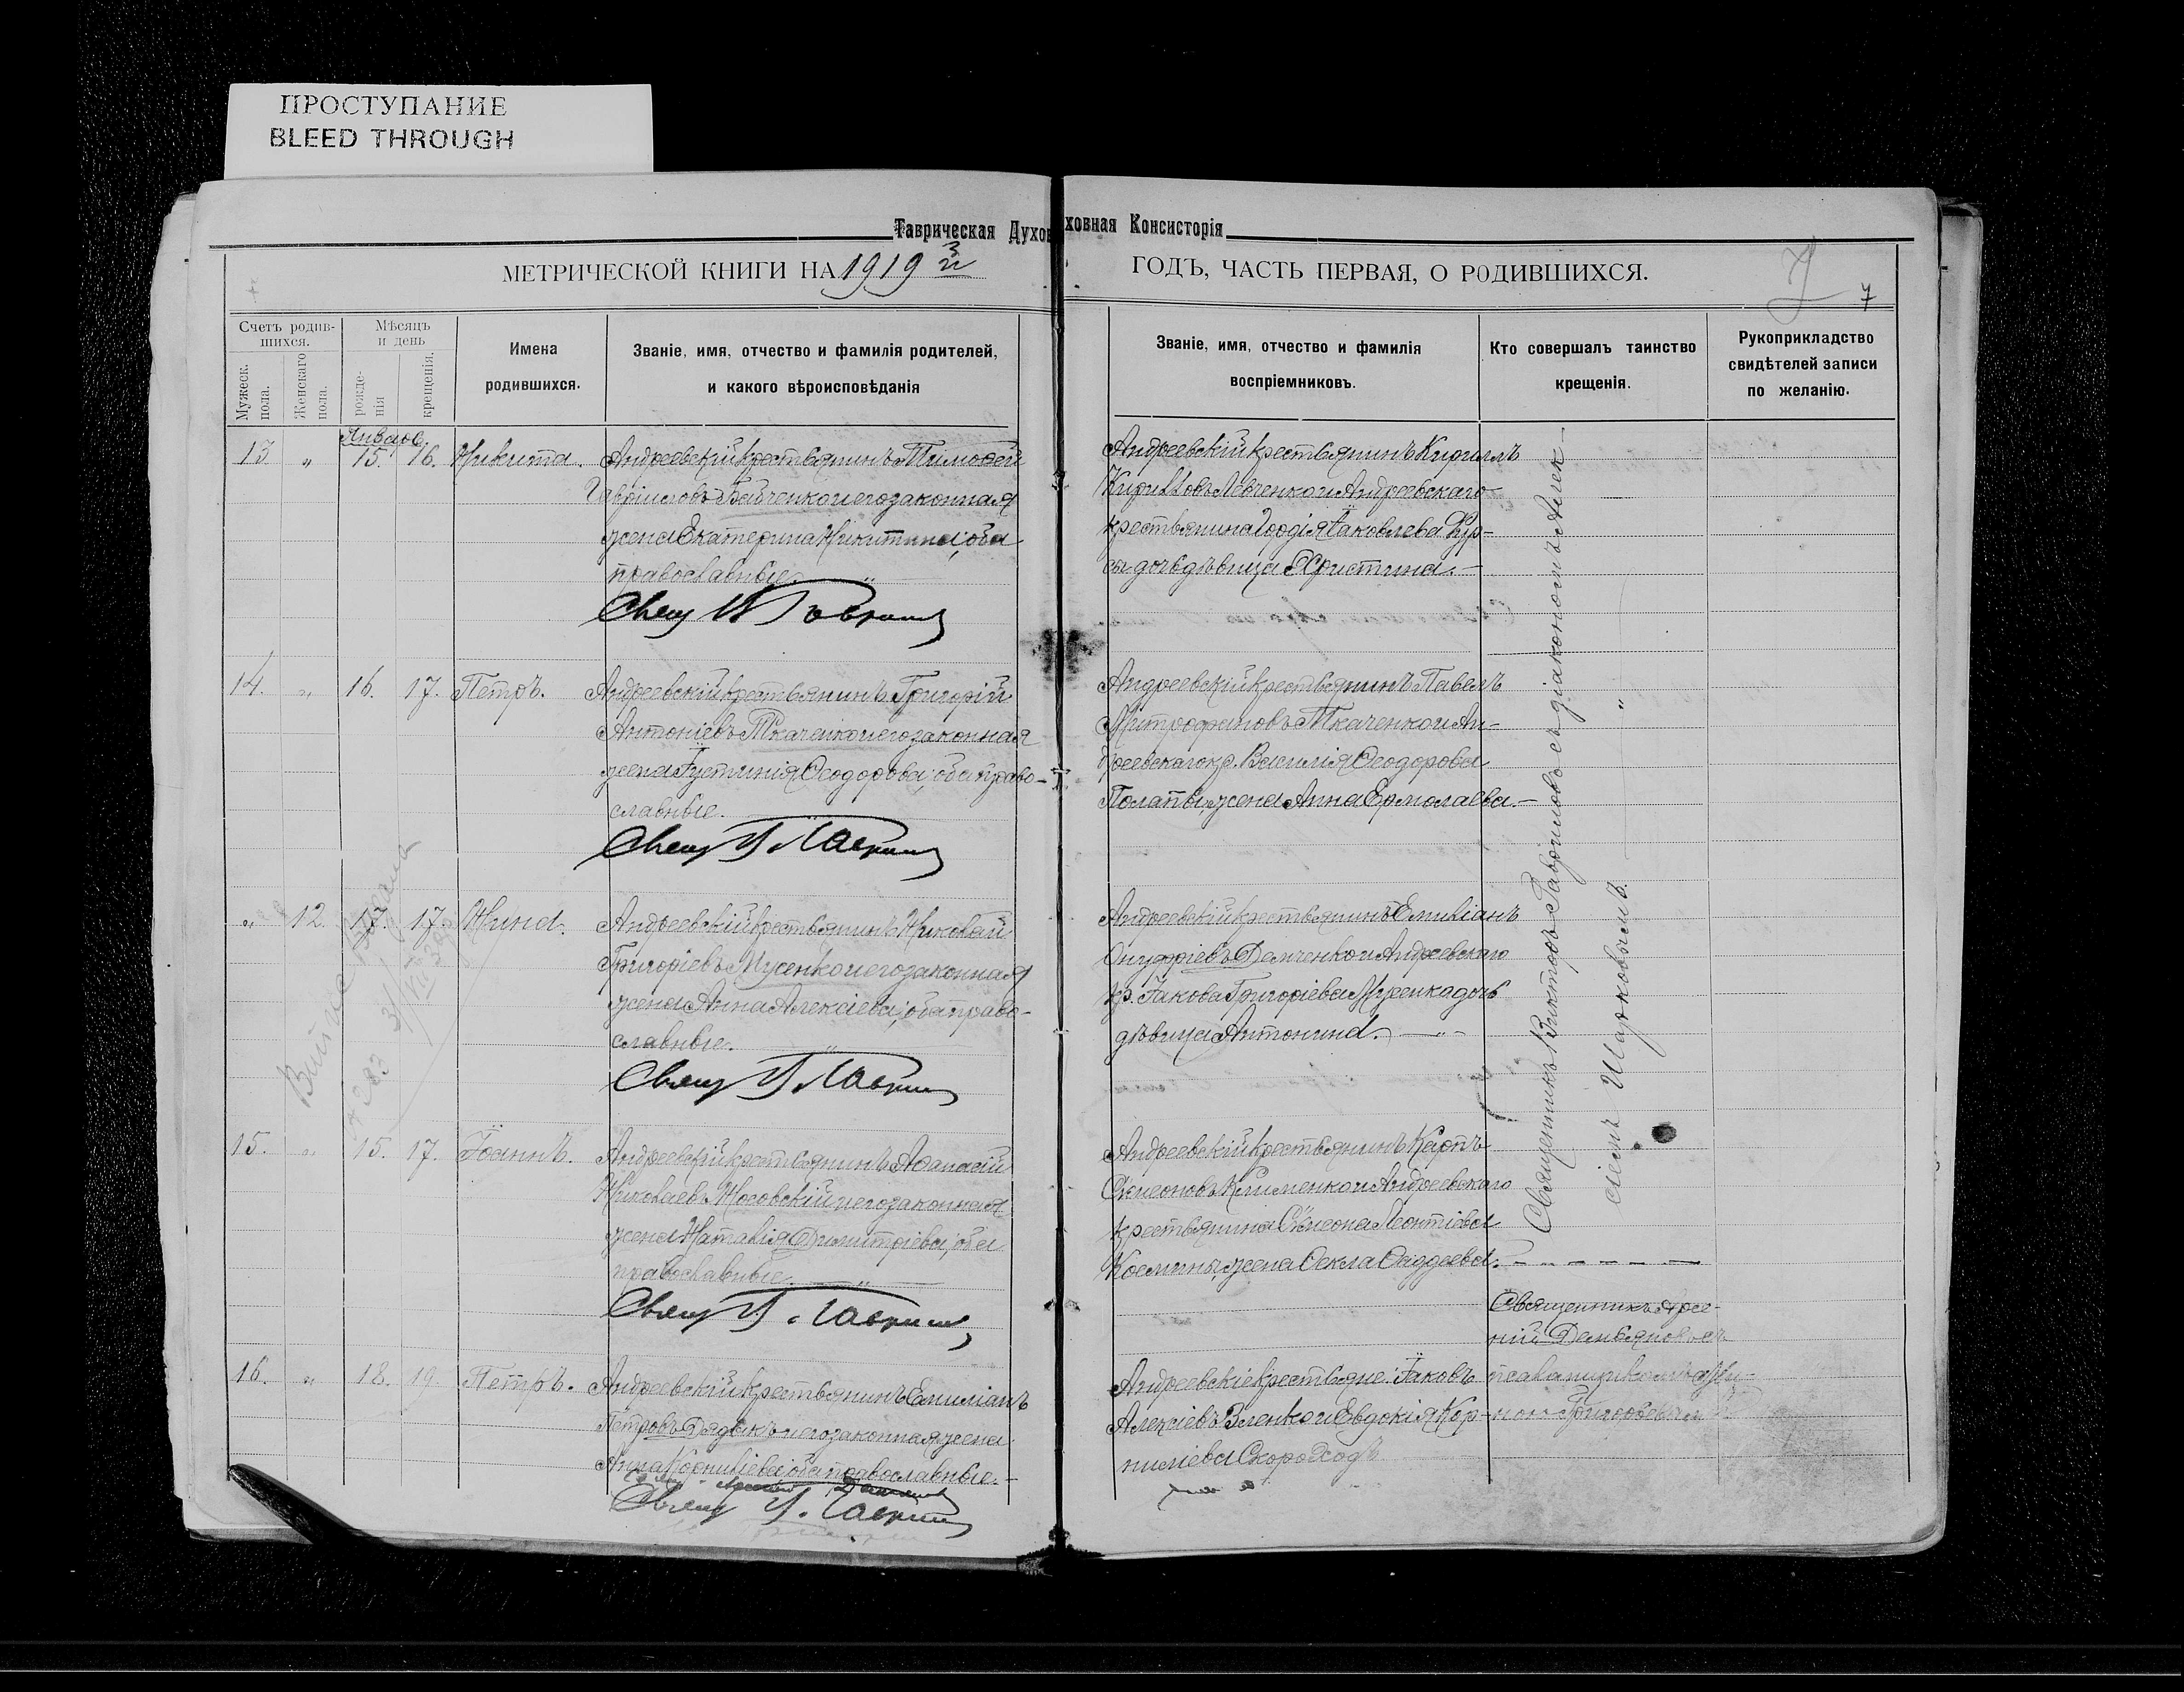 ПРОСТУПАНИЕ
BLEED THROUGH
Таврическая Духовная Консисторія
МЕТРИЧЕСКОЙ КНИГИ НА 1919 й
ГОДЪ, ЧАСТЬ ПЕРВАЯ, О РОДИВШИХСЯ.
7
Счетъ родив-
шихся.
Мужеск.
пола.
Женскаго
пола.
Мѣсяцъ
и день
рожде-
нія
крещенія.
Имена
родившихся.
Званіе, имя, отчество и фамилія родителей,
и какого вѣроисповѣданія
Званіе, имя, отчество и фамилія
воспріемниковъ.
Кто совершалъ таинство
крещенія.
Рукоприкладство
свидѣтелей записи
по желанію.
Январь.
13 " 15. 16. Никита.
Андреевскій крестьянинъ Тимофей
Гавріиловъ Бойченко и его законная
жена Екатерина Никитина; оба
православные.
Андреевскій крестьянинъ Кириллъ
Кирилловъ Левченко и Андреевскаго
крестьянина Іаковлева
дочь дѣвица Христина.
Свящ
14. " 16. 17. Петръ.
Андреевскій крестьянинъ Григорій
Антоніевъ Ткаченко и его законная
жена Іустинія Ѳеодорова; оба право-
славные.
Андреевскій крестьянинъ Павелъ
Митрофановъ Ткаченко и Ан-
дреевскаго кр. Василія Ѳеодорова
жена Анна Ермолаева.
Свящ
" 12. 17. 17. Нина.
Андреевскій крестьянинъ Николай
Григоріевъ Мусенко и его законная
жена Анна Алексіева; оба право-
славные.
Андреевскій крестьянинъ Емиліанъ
Онуфріевъ Демченко и Андреевскаго
кр. Іакова Григоріева Мусенка дочь
дѣвица Антонина.
Свящ
15. " 15. 17. Іоаннъ.
Андреевскій крестьянинъ Аѳанасій
Николаевъ Носовскій и его законная
жена Наталія Димитріева; оба
православные.
Андреевскій крестьянинъ Карпъ
Сѵмеоновъ Клименко и Андреевскаго
крестьянина Сѵмеона Леонтіева
Космины, жена Ѳекла Ѳаддеева.
Свящ
Священникъ Викторъ Гавриловъ съ діакономъ Алек-
сіемъ Шарковымъ.
16. " 18. 19. Петръ.
Андреевскій крестьянинъ Емиліанъ
Петровъ Дядыкъ и его законная жена
Анна Корниліева; оба православные.
Андреевскіе крестьяне: Іаковъ
Алексіевъ Зленко и Евдокія Кор-
ниліева Скороходъ
Священникъ Арсе-
ній Демьяновъ съ
псаломщикомъ
Григорьевымъ
Свящ